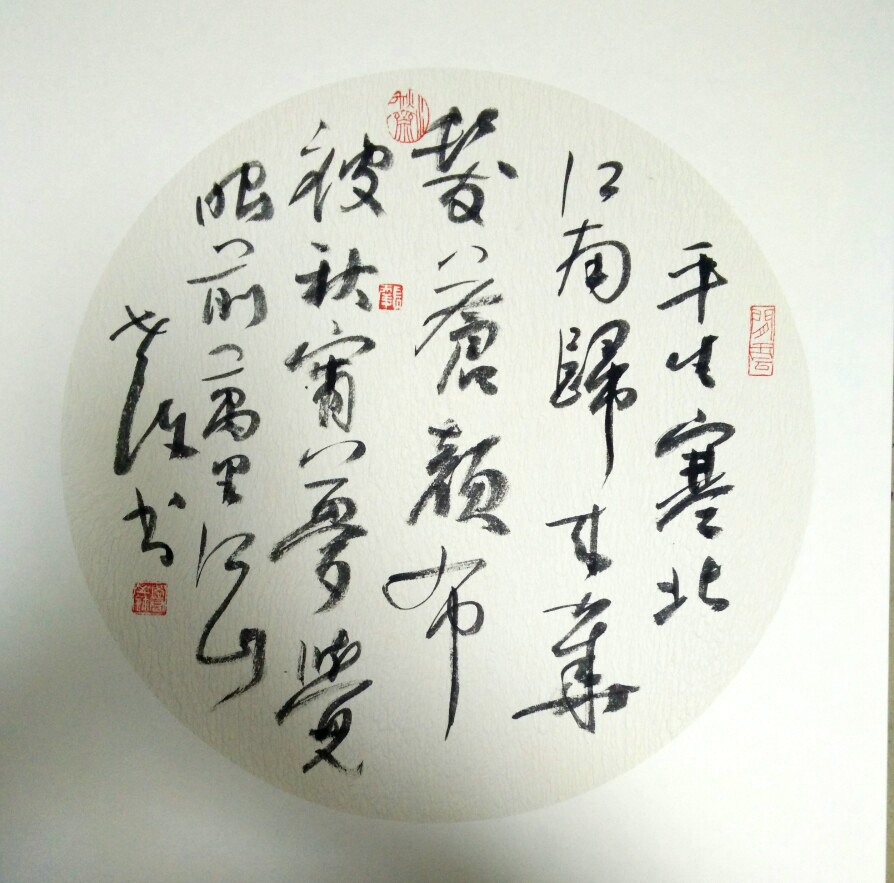 平生塞北
江南歸来華
髮蒼顏布
被秋宵夢覺
眼前萬里江山
书